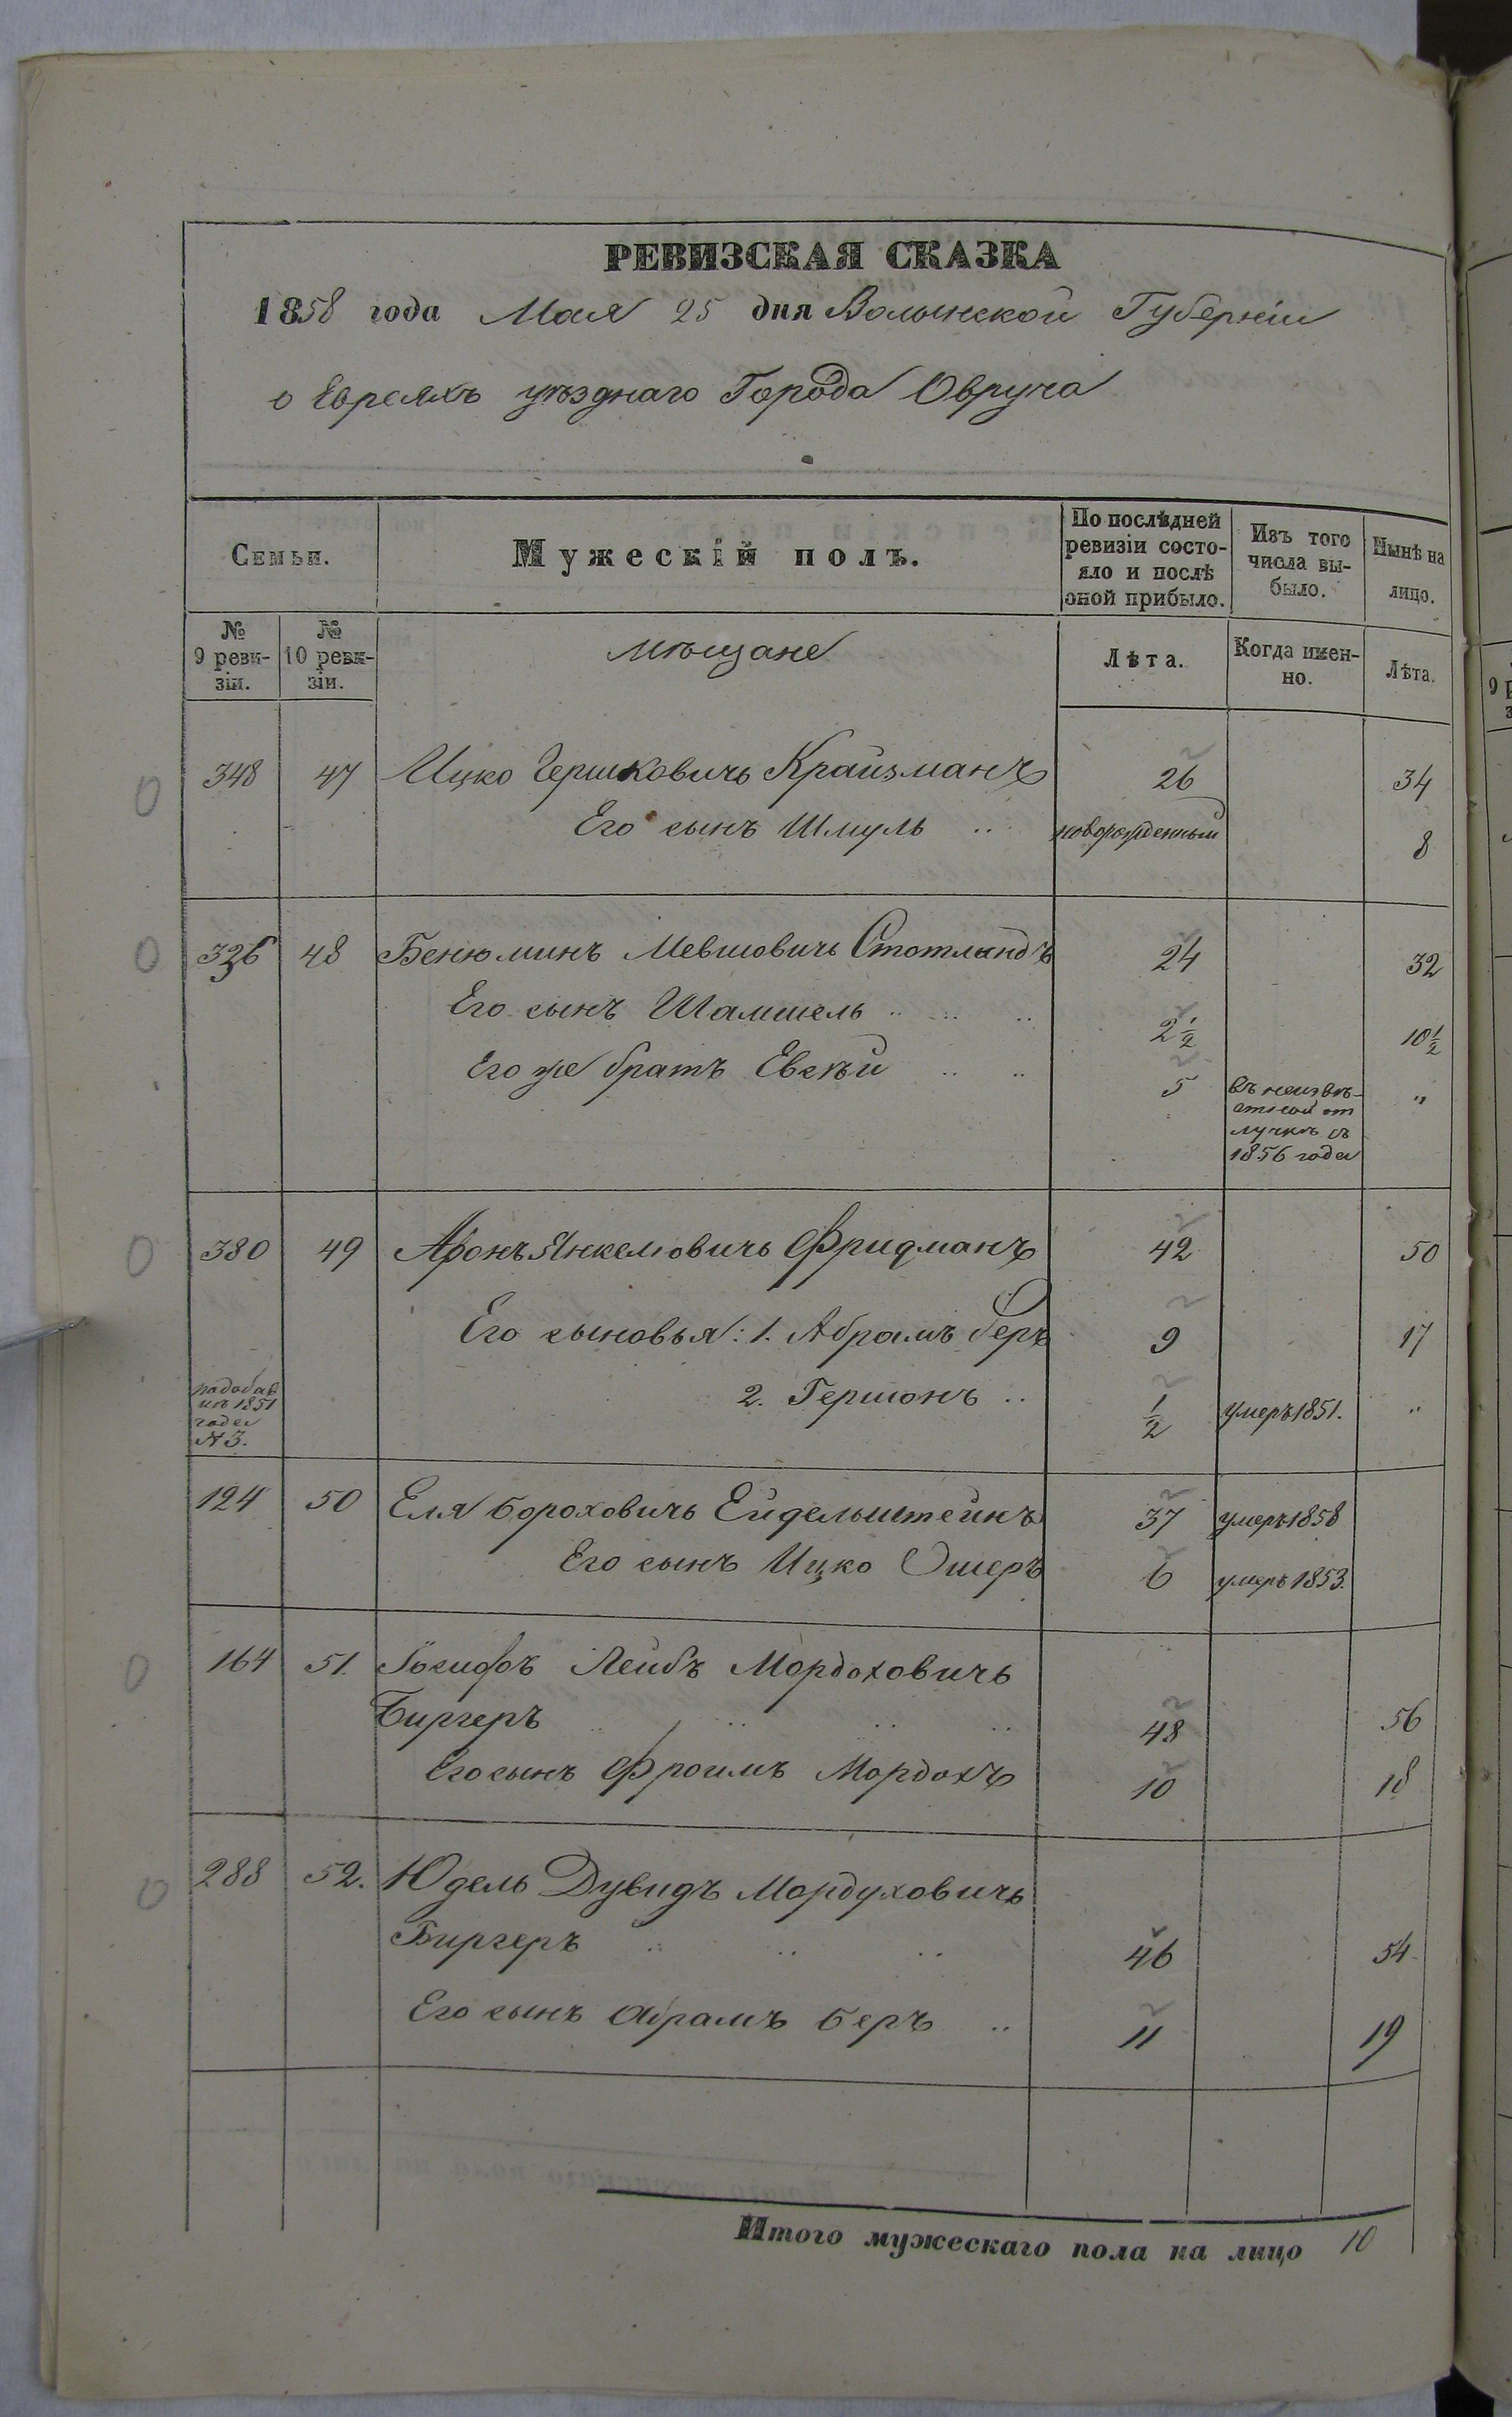 РЕВИЗСКАЯ СКАЗКА
1858 года Мая 25 дня Волынской Губерніи
о Евреяхъ уѣзднаго Города Овруча
Семьи.
Мужескій полъ.
По послѣдней ревизіи состо-
яло и послѣ
оной прибыло.
Изъ того
числа вы-
было.
Нынѣ на
лицо.
№
9 реви-
зіи.
№
10 реви-
зіи.
мѣщане
Лѣта.
Когда имен-
но.
Лѣта.
348 47 Ицко Гершковичъ Крайзманъ 26 34
Его сынъ Шмуль .. новорожденный 8
326 48 Бенюминъ Мевшовичь Стотландъ 24 32
Его сынъ Шамшель .. .. .. 2 1/2 10 1/2
Его же братъ Евсѣй .. .. 5 въ неизвѣ- "
стной от
лучкѣ съ
1856 года
380 49 Аронъ Янкелювичь Фридманъ 42 50
Его сыновья: 1. Абрамъ Беръ 9 17
2. Гершонъ .. 1/2 умеръ 1851. ..
1851
года
№ 3.
124 50 Еля Бороховичь Ейдельштейнъ 37 умеръ 1858
Его сынъ Ицко Ошеръ 6 умеръ 1853.
164 51. Іосифъ Лейбъ Мордоховичь
Биргеръ .. .. .. .. 48 56
Его сынъ Фроимъ Мордохъ 10 18
288 52. Юдель Дувидъ Мордуховичь
Биргеръ .. .. .. 46 54
Его сынъ Абрамъ Беръ .. 11 19
Итого мужескаго пола на лицо 10